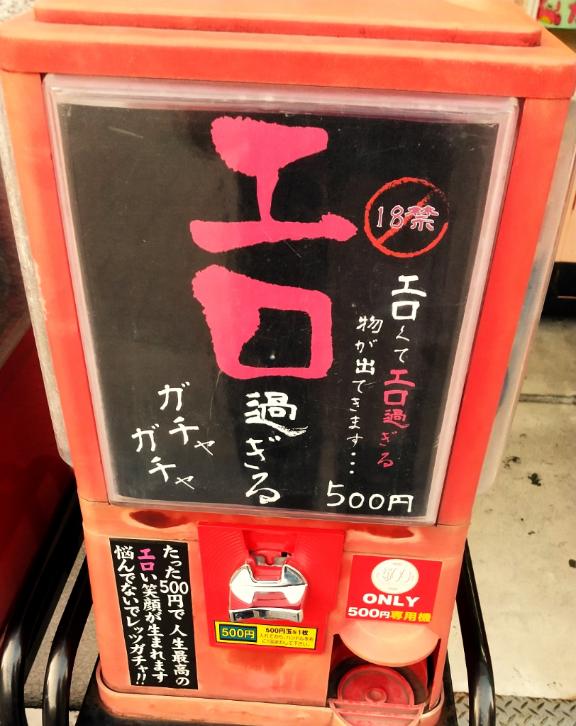 エロ過ぎる
ガチャ
ガチャ
18禁
エロくてエロ過ぎる
物が出てきます・・・
500円
たった500円で人生最高の
エロい笑顔が生まれます
悩んでないでレッツガチャ!!
500円
500円玉を1枚
ONLY
500円専用機